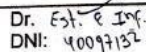 Dr. Est. e Inf.
DNI: 40097132